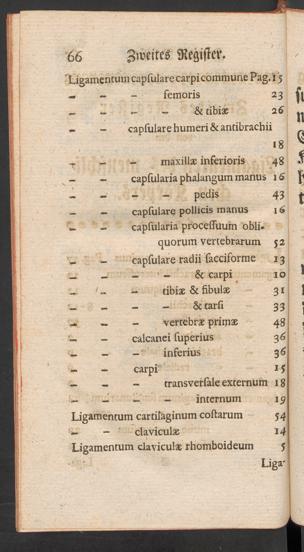 66 Zweites Register.
Ligamentum capsulare carpi commune Pag. 15
- - - femoris 23
- - - - & tibiæ 26
- - capsulare humeri & antibrachii
18
- - - maxillæ inferioris 48
- - capsularia phalangum manus 16
- - - - pedis 43
- - capsulare pollicis manus 16
- - capsularia processuum obli-
quorum vertebrarum 52
- - capsulare radii sacciforme 13
- - - - & carpi 10
- - - tibiæ & fibulæ 31
- - - - & tarsi 33
- - - vertebræ primæ 48
- - calcanei superius 36
- - - inferius 36
- - carpi 15
- - - transversale externum 18
- - - - internum 19
Ligamentum cartilaginum costarum 54
- - claviculæ 14
Ligamentum claviculæ rhomboideum 5
Liga-